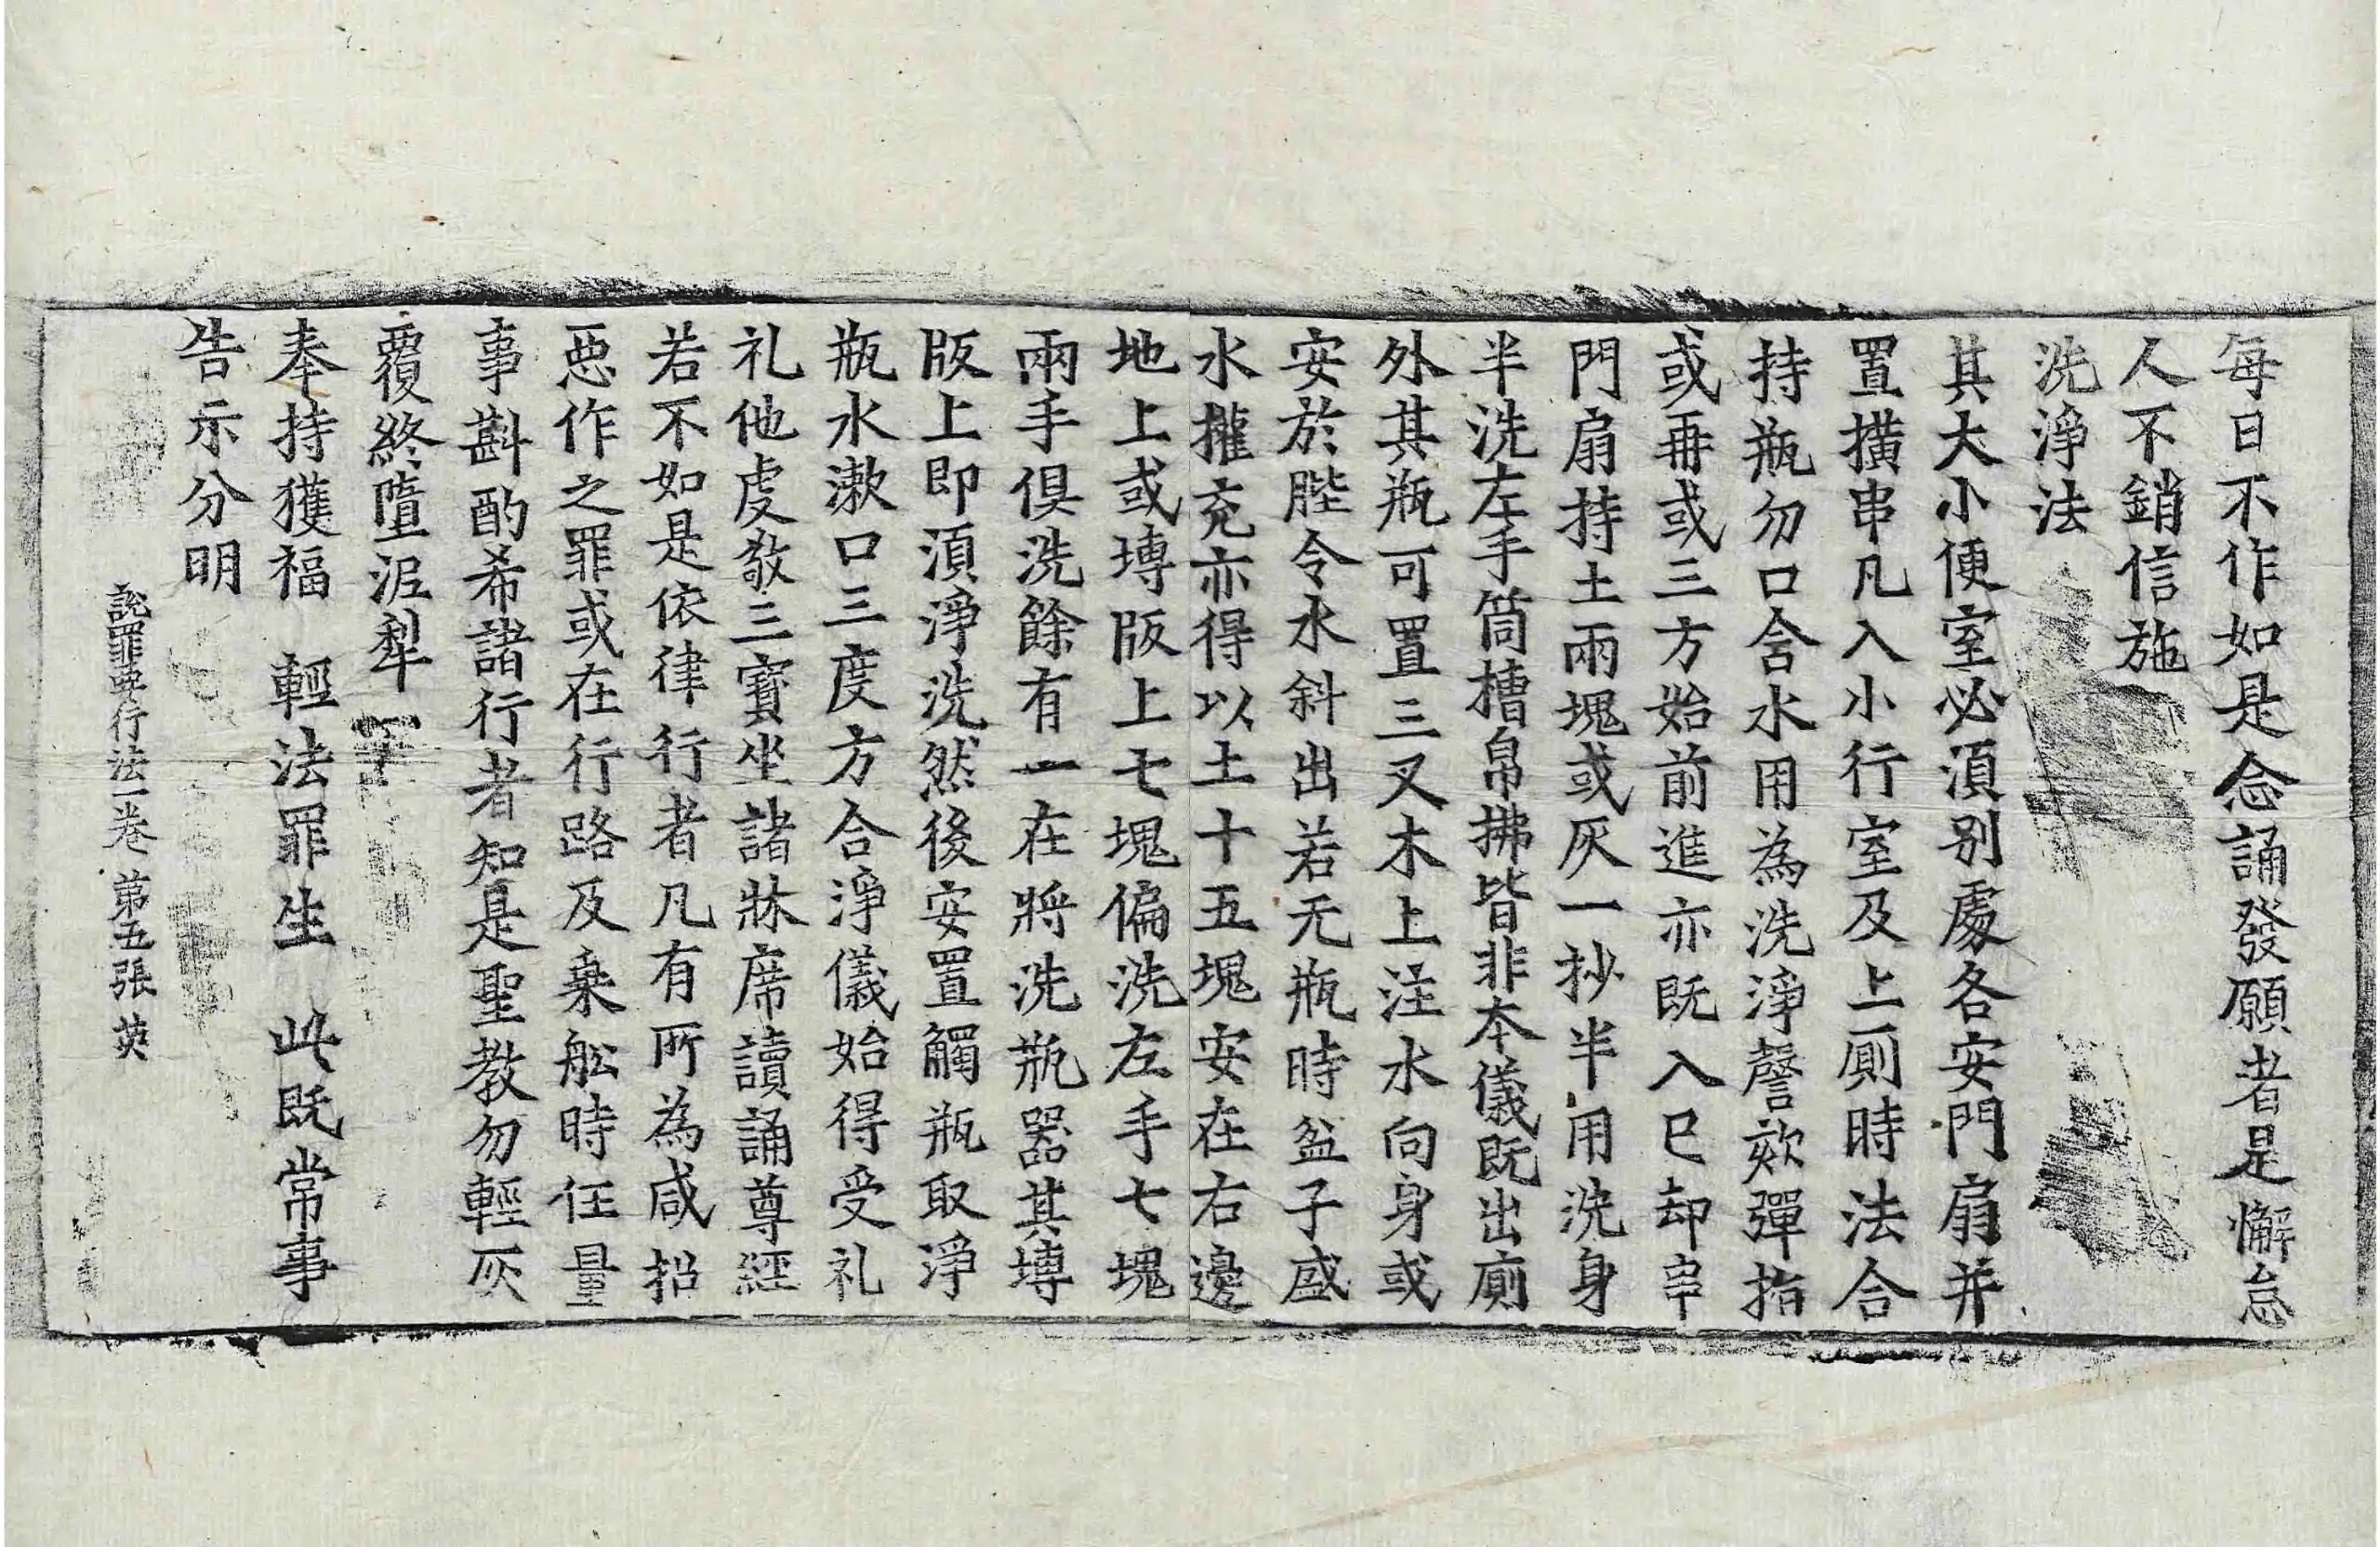 每日不作如是念誦發願者是懈怠
人不銷信施
洗淨法
其大小便室必湏別處各安門扇并
置撗串凡入小行室及上厠時法合
持瓶勿口含水用為洗淨謦欬彈指
或再或三方始前進亦既入已却串
門扇持土兩塊或灰一抄半用洗身
半洗左手筒槽帛拂皆非本儀既出廁
外其瓶可置三叉木上注水向身或
安於䏶令水斜出若无瓶時盆子盛
水攉充亦得以土十五塊安在右邊
地上或塼版上七塊偏洗左手七塊
兩手俱洗餘有一在將洗瓶器其塼
版上即湏淨洗然後安置觸瓶取淨
瓶水漱口三度方合淨儀始得受礼
礼他䖏敎三寶坐諸牀席讀誦尊經
若不如是依律行者凡有所為咸招
惡作之罪或在行路及乗舩時任量
事斟酌希諸行者知是聖教勿輕灰
覆終墮泥犁
奉持獲福　輕法罪生　此既常事
告示分明
說罪要行法一卷　第五張　英